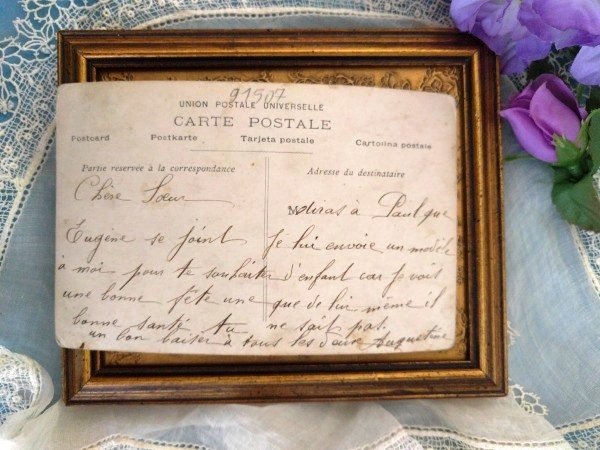 91507
UNION POSTALE UNIVERSELLE
CARTE POSTALE
Postcard Postkarte Tarjeta postale Cartolina postale
Partie reservée à la correspondance
Chère Sœur
Eugène se joint
à moi pour te souhaiter
une bonne fête une
bonne santé tu
Adresse du destinataire
diras à Paul que
je lui envoie un modèle
d'enfant car je vois
que de lui même il
ne sait pas.
un bon baiser à tous les deux Augustine